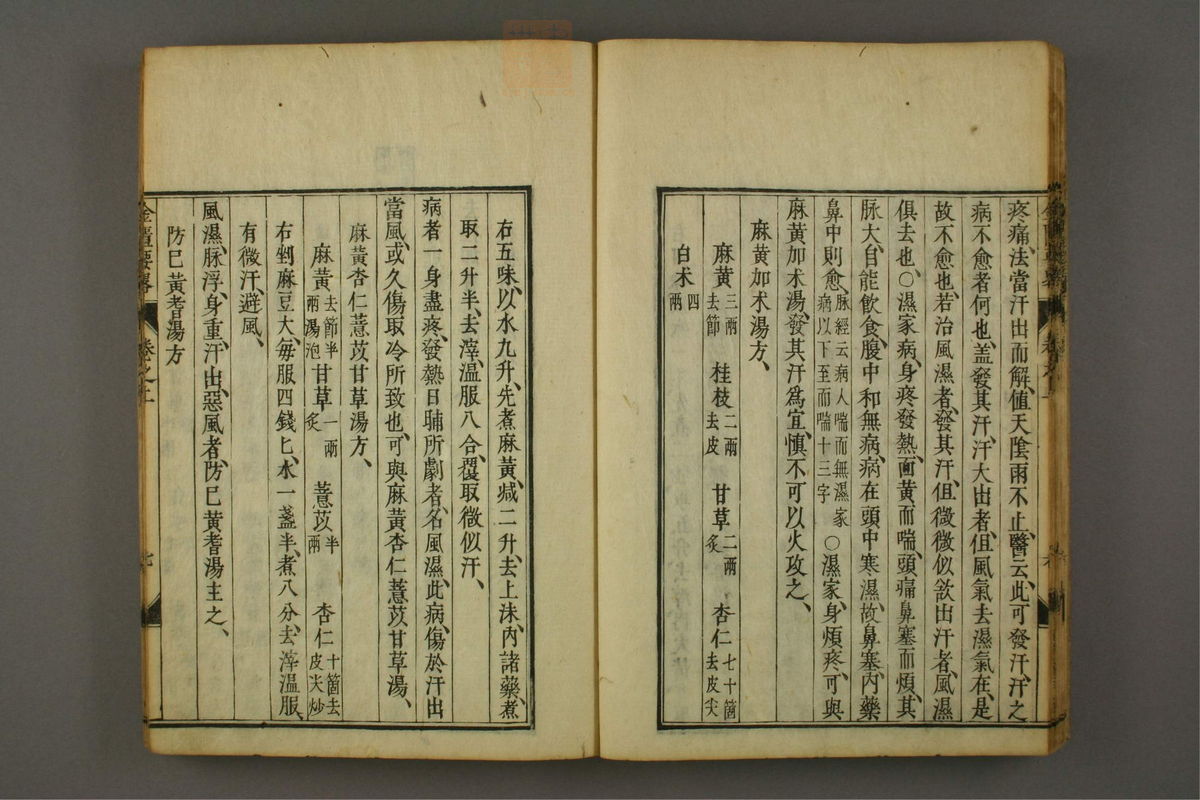 疼痛、法當汗出而解、值天陰雨不止、醫云、此可發汗、汗之
病不愈者何也、盖發其汗、汗大出者、但風氣去濕氣在、是
故不愈也、若治風濕者、發其汗、但微微似欲出汗者、風濕
俱去也、○濕家病、身疼發熱、面黃而喘、頭痛鼻塞而煩、其
脉大、自能飲食、腹中和無病、病在頭中寒濕、故鼻塞、內藥
鼻中則愈、脉經云病人喘而無濕家病以下至而喘十三字 ○濕家、身煩疼、可與
麻黃加朮湯、發其汗爲宜、慎不可以火攻之、
麻黃加朮湯方、
麻黃三兩去節 桂枝二兩去皮 甘草二兩炙 杏仁七十箇去皮尖
白朮四兩
右五味、以水九升、先煮麻黃、减二升、去上沫、內諸藥、煮
取二升半、去滓、溫服八合、覆取微似汗、
病者一身盡疼、發熱日晡所劇者、名風濕、此病傷於汗出
當風、或久傷取冷所致也、可與麻黃杏仁薏苡甘草湯、
麻黃杏仁薏苡甘草湯方、
麻黃去節半兩湯泡 甘草一兩炙 薏苡半兩 杏仁十箇去皮尖炒
右剉麻豆大、每服四錢匕、水一盞半、煮八分、去滓、溫服、
有微汗、避風、
風濕、脉浮、身重、汗出、惡風者、防已黃耆湯主之、
防已黃耆湯方
金匱要畧 卷之上 七